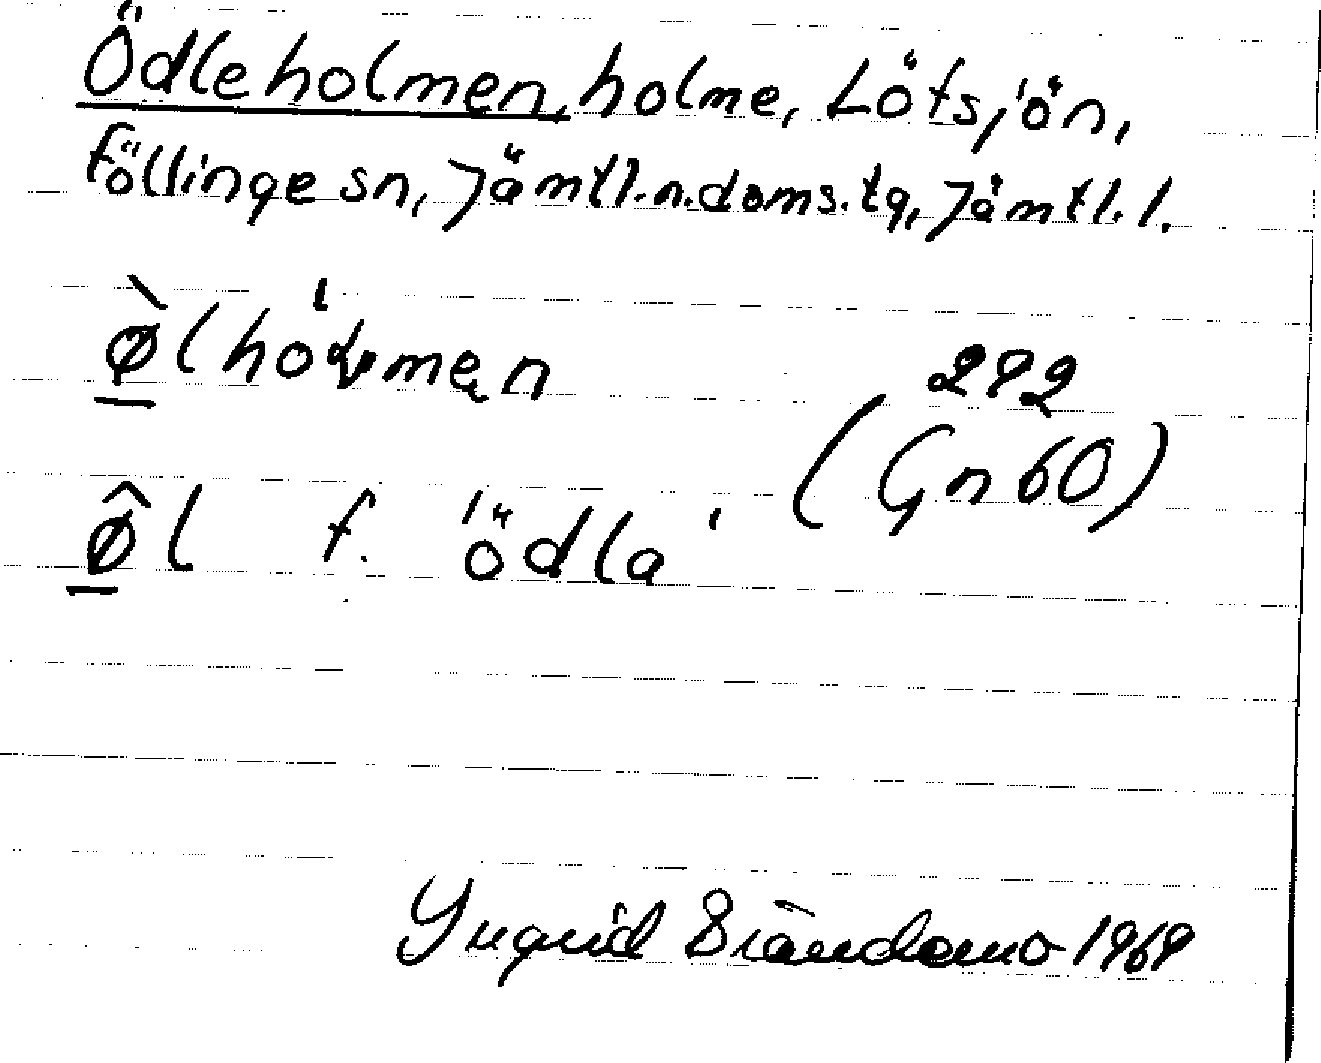 Ödleholmen, holme, Lötsjön,
Föllinge sn, Jämtl.n.doms.tg, Jämtl.l.
ø̀lhóɽmən
292
(Gn 60)
ø̂l f. 'ödla'
Yngrid Brändomo 1969